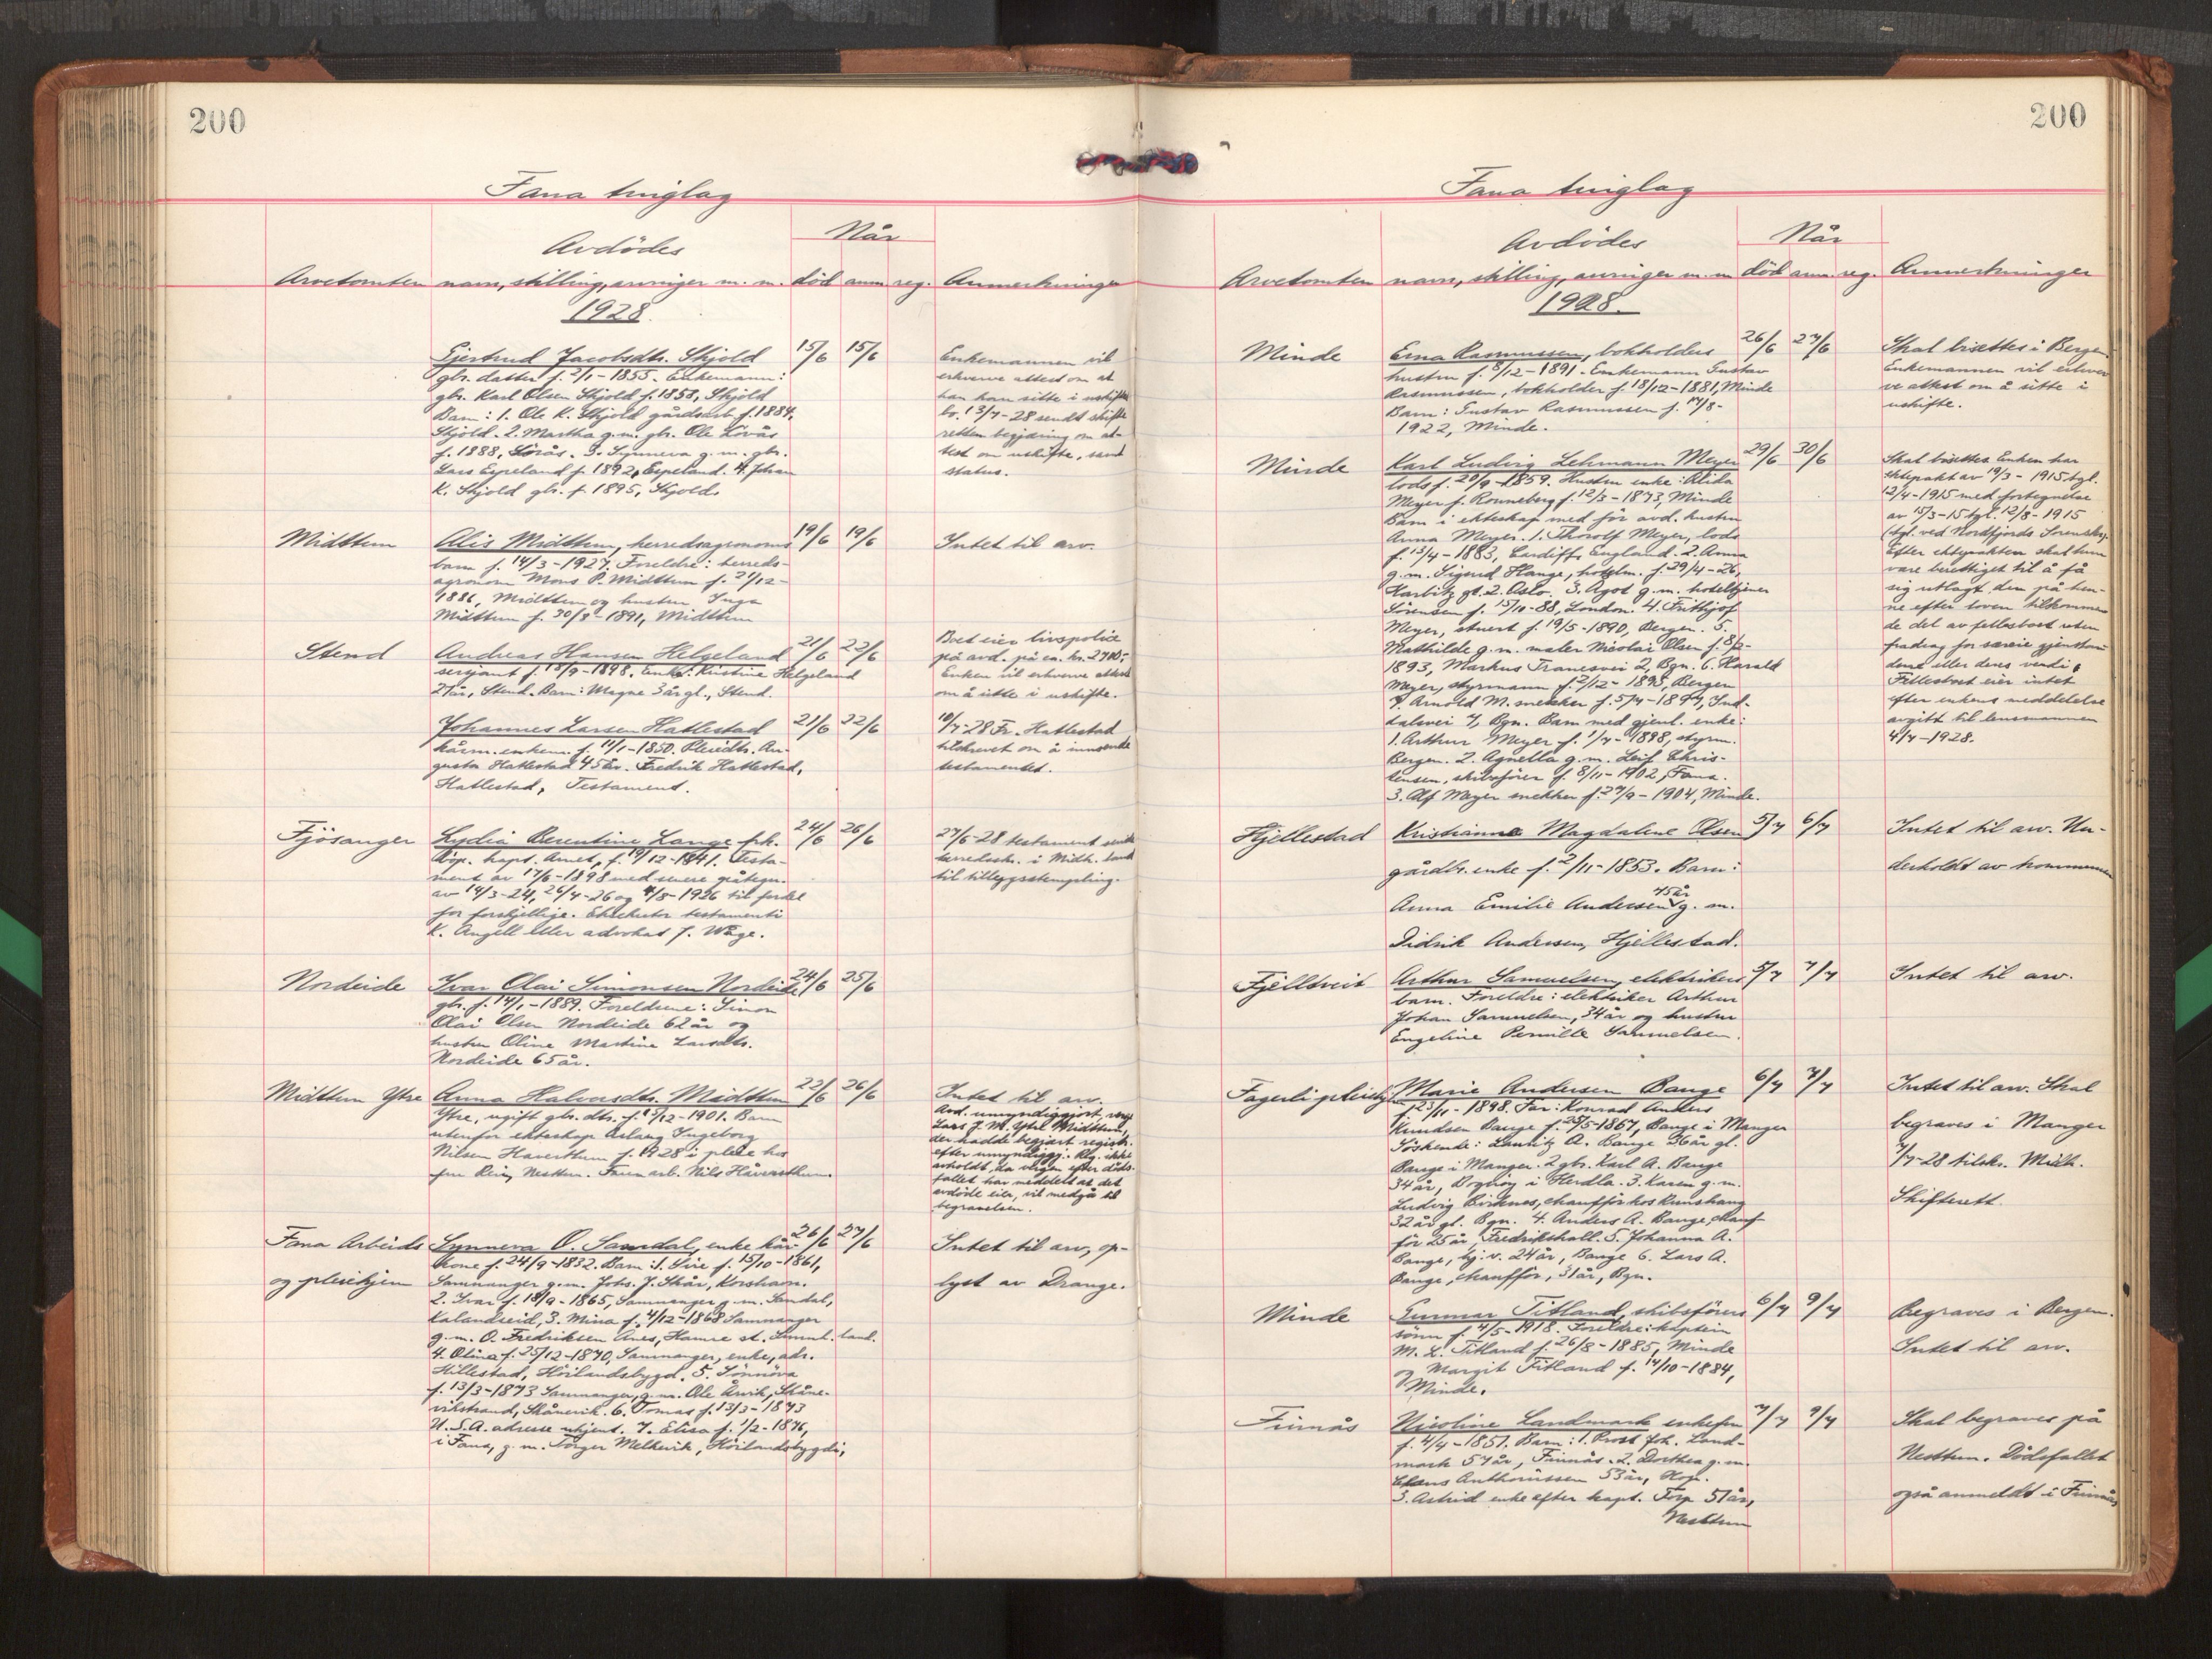 200
Fana tinglag
Når
Avdödes
Arvetomten navn, stilling, arvinger m. m. död anm. reg. Anmerkninger
1928.
Gjertrud Jacobsdtr. Skjold 15/6 15/6
gbr. datter f. 2/1-1855. Enkemann:
gbr. Karl Olsen Skjold f. 1858, Skjold
Barn: 1. Ole K. Skjold gårdsarb. f. 1884,
Skjold. 2. Martha g.m. gbr. Ole Lövås
f. 1888, Lövås. 3. Synneva g.m. gbr.
Lars Espeland f. 1892, Espeland. 4. Johan
K. Skjold gbr. f. 1895, Skjold.
Enkemannen vil
erhverve attest om at
han kan sitte i uskiftet
bo. 13/7-28 sendt skifte
retten begjæring om at-
test om uskifte, samt
status.
Midttun Alis Midttun, herredsagronoms 19/6 19/6
barn f. 14/3-1927. Foreldre: herreds-
agronom Mons P. Midttun f. 21/12-
1886, Midttun og hustru Inga
Midttun f. 30/8-1891, Midttun
Intet til arv.
Stend Andreas Hansen Helgeland 21/6 22/6
serjant f. 18/9-1898. Enke: Kristine Helgeland
27 år, Stend. Barn: Magne 3 år gl., Stend.
Boet eier livspolice
på avd. på ca. kr. 2700,-
Enken vil erhverve attest
om å sitte i uskifte.
Johannes Larsen Hatlestad 21/6 22/6
kårm. enkem. f. 11/1-1850. Pleiedtr. Au-
gusta Hatlestad 45 år. Fredrik Hatlestad,
Hatlestad, Testament.
10/7-28 Fr. Hatlestad
tilskrevet om å innsende
testamentet.
Fjösanger Lydia Berentine Lange frk. 24/6 26/6
f. 19/12-1841. Testa-
ment av 17/6-1898 med senere påtegn.
av 14/3-24, 26/4-26 og 4/8-1926 til fordel
for forskjellige. Eksekutor testamenti
K. Angell eller advokat J. Wage.
27/6-28 testament sendt
herredsskr. i Midth.land
til tilleggsstempling.
Nordeide Ivar Olai Simonsen Nordeide 24/6 25/6
gbr. f. 14/1-1889. Foreldrene: Simon
Olai Olsen Nordeide 62 år og
hustru Oline Martine Larsdtr.
Nordeide 65 år.
Midttun Ytre Anna Halvorsdtr. Midttun 22/6 26/6
Ytre, ugift gbr. dtr. f. 15/12-1901. Barn
utenfor ekteskap Aslaug Ingeborg
Nilsen Haversthun f. 1928 i pleie hos
fru Rein, Nesttun. Faren arb. Nils Håversthun.
Intet til arv.
Avd. umyndiggjort, verge
Lars J. M. Ytre Midttun,
der hadde begjært registr.
efter umyndiggj. Rg. ikke
avholdt, da vergen efter döds-
fallet har meddelt at det
avdöde eier, vil medgå til
begravelsen.
Fana Arbeids Synneva O. Samdal, enke kår- 26/6 27/6
og pleiehjem
kone f. 24/9-1832. Barn: 1. Siri f. 15/10-1861,
Samnanger g.m. Johs. J. Skår, Korshavn.
2. Ivar f. 18/9-1865, Samnanger g.m. Samdal,
Kalandseid, 3. Mina f. 4/12-1868 Samnanger
g.m. O. Fredriksen Ånes, Hamre st. Sunnh.land.
4. Olina f. 25/12-1870, Samnanger, enke, adr.
Hillestad, Höilandsbygd. 5. Sönnöva
f. 13/3-1873 Samnanger, g.m. Ole Årvik, Skåne-
vikstrand, Skånevik. 6. Tomas f. 13/3-1873
U.S.A. adresse ukjent. 7. Elisa f. 1/2-1876,
i Fana, g.m. Torger Melkevik, Höilandsbygd;
Intet til arv, op-
lyst av Drange.
200
Fana tinglag
Når
Avdödes
Arvetomten navn, stilling, arvinger m. m. död anm. reg. Anmerkninger
1928.
Minde Erna Rasmussen, bokholders 26/6 27/6
hustru f. 8/12-1891. Enkemann Gustav
Rasmussen, bokholder f. 18/12-1881, Minde
Barn: Gustav Rasmussen f. 14/8-
1922, Minde.
Skal bisettes i Bergen.
Enkemannen vil erhver
ve attest om å sitte i
uskifte.
Minde Karl Ludvig Lehmann Meyer 29/6 30/6
lods f. 20/9-1859. Hustru enke: Alida
Meyer f. Ronneberg f. 12/3-1873, Minde
Barn i ekteskap med för avd. hustru
Anna Meyer. 1. Thorolf Meyer, lods
f. 13/4-1883, Cardiff, England. 2. Anna
g.m. Sigurd Hange, hotelm. f. 29/4-26,
Karbitz gt. 2. Oslo. 3. Ågot g.m. hoteltjener
Sörensen f. 15/10-88, London. 4. Frithjof
Meyer, stuert f. 19/5-1890, Bergen. 5.
Mathilde g.m. maler Nicolai Olsen f. 8/2-
1893, Markus Tranesvei 2, Bgn. 6. Harald
Meyer, styrmann f. 2/12-1895, Bergen
7. Arnold M. snekker f. 5/4-1897, Ind-
dalsvei 7, Bgn. Barn med gjenl. enke:
1. Arthur Meyer f. 1/7-1898, styrm.
Bergen. 2. Agnella g.m. Leif Chris-
tensen, skibsförer f. 8/11-1902, Fana.
3. Alf Meyer snekker f. 27/9-1904, Minde.
Skal bisettes. Enken har
ektepakt av 19/3-1915 tgl.
12/4-1915 med fortegnelse
av 15/3-15 tgl. 12/8-1915
(tgl. ved Nordfjords Sorenskr.
Efter ektepakten skal hun
være berettiget til å få
sig utlagt den på hen-
ne efter loven tilkommen
de del av fellesboet uten
fradrag for særeie gjenstan
dene eller deres verdi.
Fellesboet eier intet
efter enkens meddelelse
avgitt til lensmannen
4/7-1928.
Hjellestad Kristianna Magdalene Olsen 5/7 6/7
gårdbr. enke f. 2/11-1853. Barn:
45 år
Anna Emilie Andersen g. m.
Didrik Andersen, Hjellestad.
Intet til arv. Un-
derholdt av kommunen
Fjelltveit Arthur Samuelsen, elektrikers 5/7 7/7
barn. Foreldre: elektriker Arthur
Johan Samuelsen, 34 år og hustru
Engeline Pernille Samuelsen.
Intet til arv.
Fagerli pleiehj. Marie Andersen Bauge 6/7 7/7
f. 23/11-1898. Far: Konrad Anders
Knudsen Bauge f. 25/5-1867, Bauge i Manger
Söskende: Lauritz A. Bauge 36 år gl.
Bauge i Manger. 2 gbr. Karl A. Bauge
34 år, i Herdla. 3. Karen g.m.
Ludvig Birknes, chaufför hos Runshaug
32 år gl. Bgn. 4. Anders A. Bauge, chauf-
för 25 år, Fredrikshall. 5. Johanna A.
Bauge, hj. v. 24 år, Bauge 6. Lars A.
Bauge, chaufför, 31 år, Bgn.
Intet til arv. Skal
begraves i Manger
7/7-28 tilskr. Midh.
Skifterett.
Minde Gunnar Titland, skibsförers 6/7 9/7
sönn f. 4/5-1918. Foreldre: kaptein
M. L. Titland f. 26/8-1885, Minde
og Margit Titland f. 14/10-1884,
Minde.
Begraves i Bergen.
Intet til arv.
Finnås Nicoline Landmark enkefru 7/7 9/7
f. 4/4-1851. Barn: 1. Prost Joh. Land-
mark 57 år, Finnås. 2. Dorthea g.m.
Claus Anthonissen 53 år, Hop.
3. Astrid enke efter kapt. Torp 51 år,
Nesttun
Skal begraves på
Nesttun. Dödsfallet
også anmeldt i Finnås